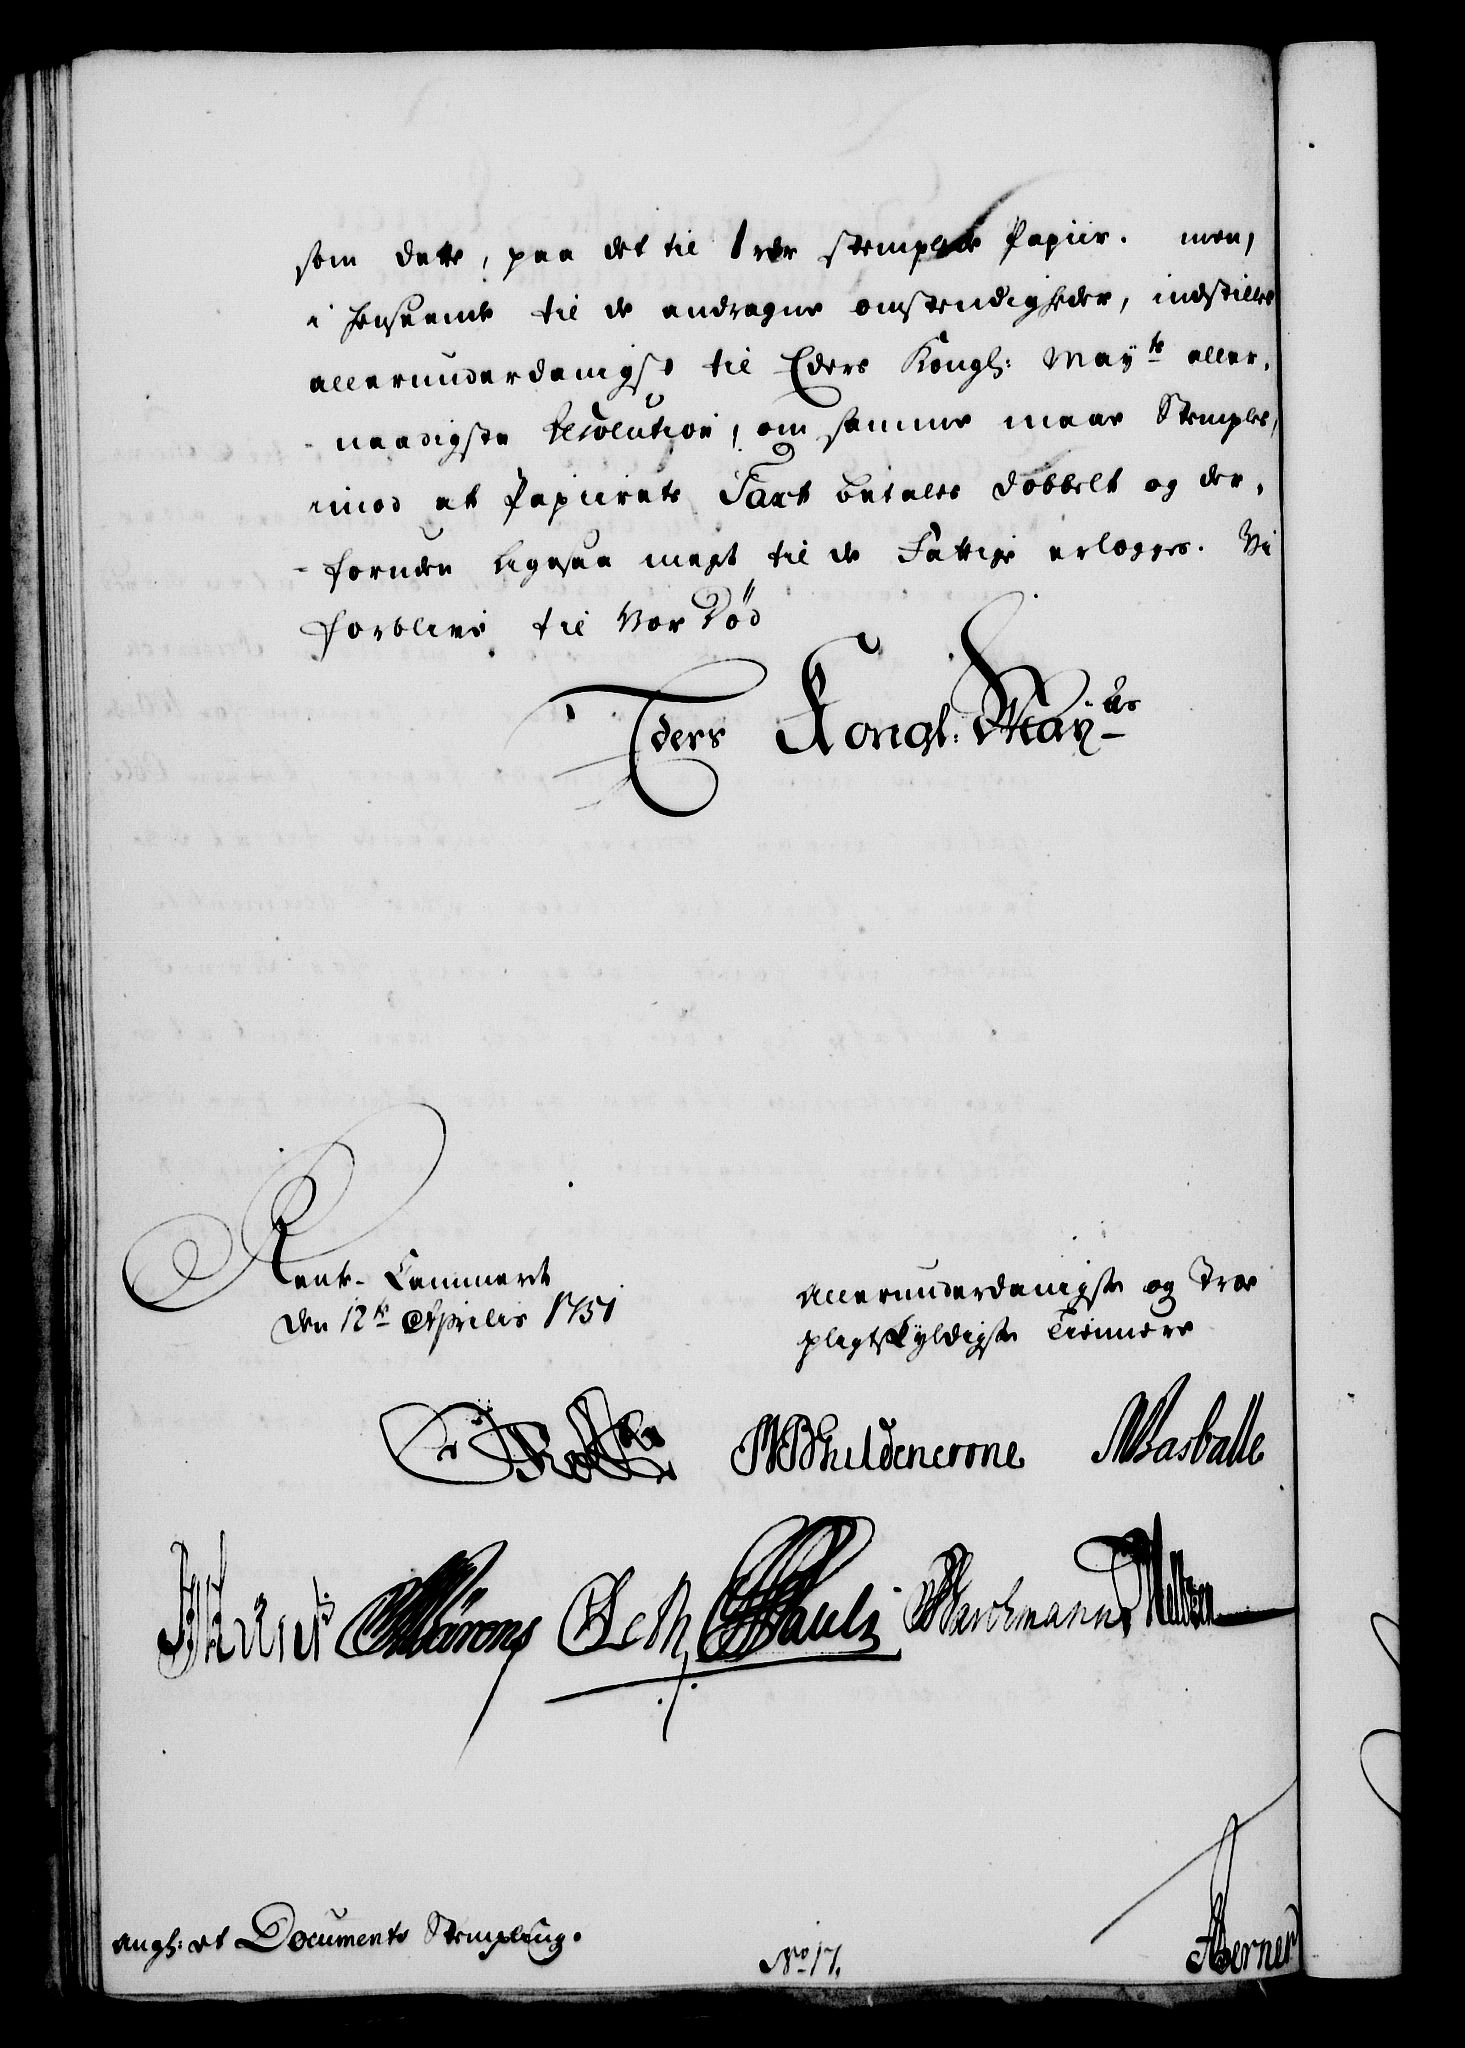 som dette, paa det til 1 rdr stemplede Papiir. men,
i henseende til de andragne omstendigheder, indstilles
allerunderdanigst til Eders Kongl: May.te aller-
- naadigste Resolution, om samme maae Stemples,
imod at Papiirets Taxt betales dobbelt og der-
- foruden ligesaa meget til de Fattige erlegges. Vi
forblive til Vor Død
Eders Kongl: May.ts
Rente-Cammeret
den 12te Aprilis 1751
Allerunderdanigste og Troe
pligtskyldigste Tiennere
Holstein
Gyldencrone
Basballe
Pauli
Marchmann
ang: et Documents Stempling.
No 17.
Berner